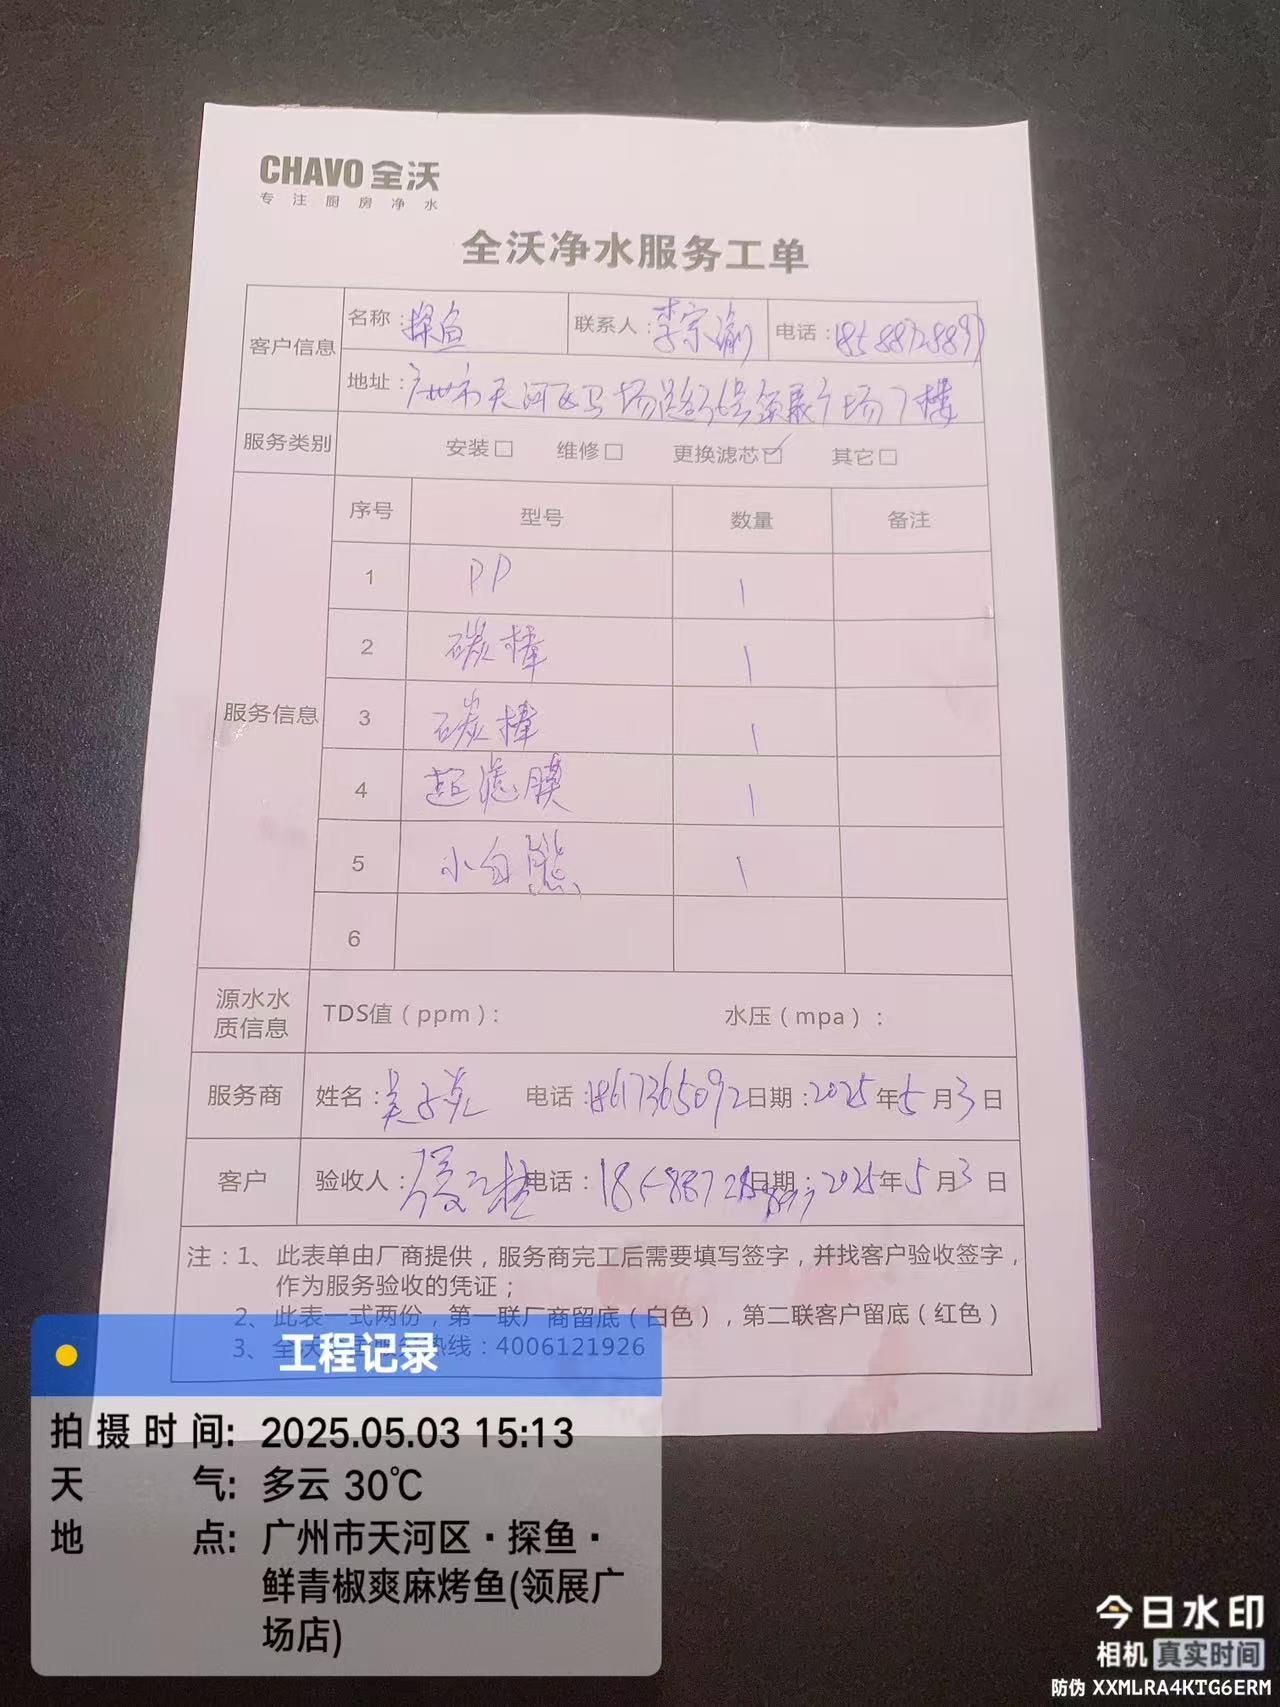 CHAVO 全沃
专注厨房净水
全沃净水服务工单
客户信息 名称：探鱼 联系人：李宗瀚 电话：
地址：广州市天河区马场路36号领展广场7楼
服务类别 安装□ 维修□ 更换滤芯☑ 其它□
服务信息 序号 型号 数量 备注
1 PP 1
2 碳棒 1
3 碳棒 1
4 超滤膜 1
5 小白熊 1
6
源水水质信息 TDS值（ppm）： 水压（mpa）：
服务商 姓名：吴子 电话：18617365092 日期：2025年5月3日
客户 验收人： 电话： 日期：2025年5月3日
注：1、此表单由厂商提供，服务商完工后需要填写签字，并找客户验收签字，
作为服务验收的凭证；
2、此表一式两份，第一联厂商留底（白色），第二联客户留底（红色）
3、全沃 热线：4006121926
工程记录
拍摄时间: 2025.05.03 15:13
天气: 多云 30℃
地点: 广州市天河区·探鱼·
鲜青椒爽麻烤鱼(领展广
场店)
今日水印
相机 真实时间
防伪 XXMLRA4KTG6ERM